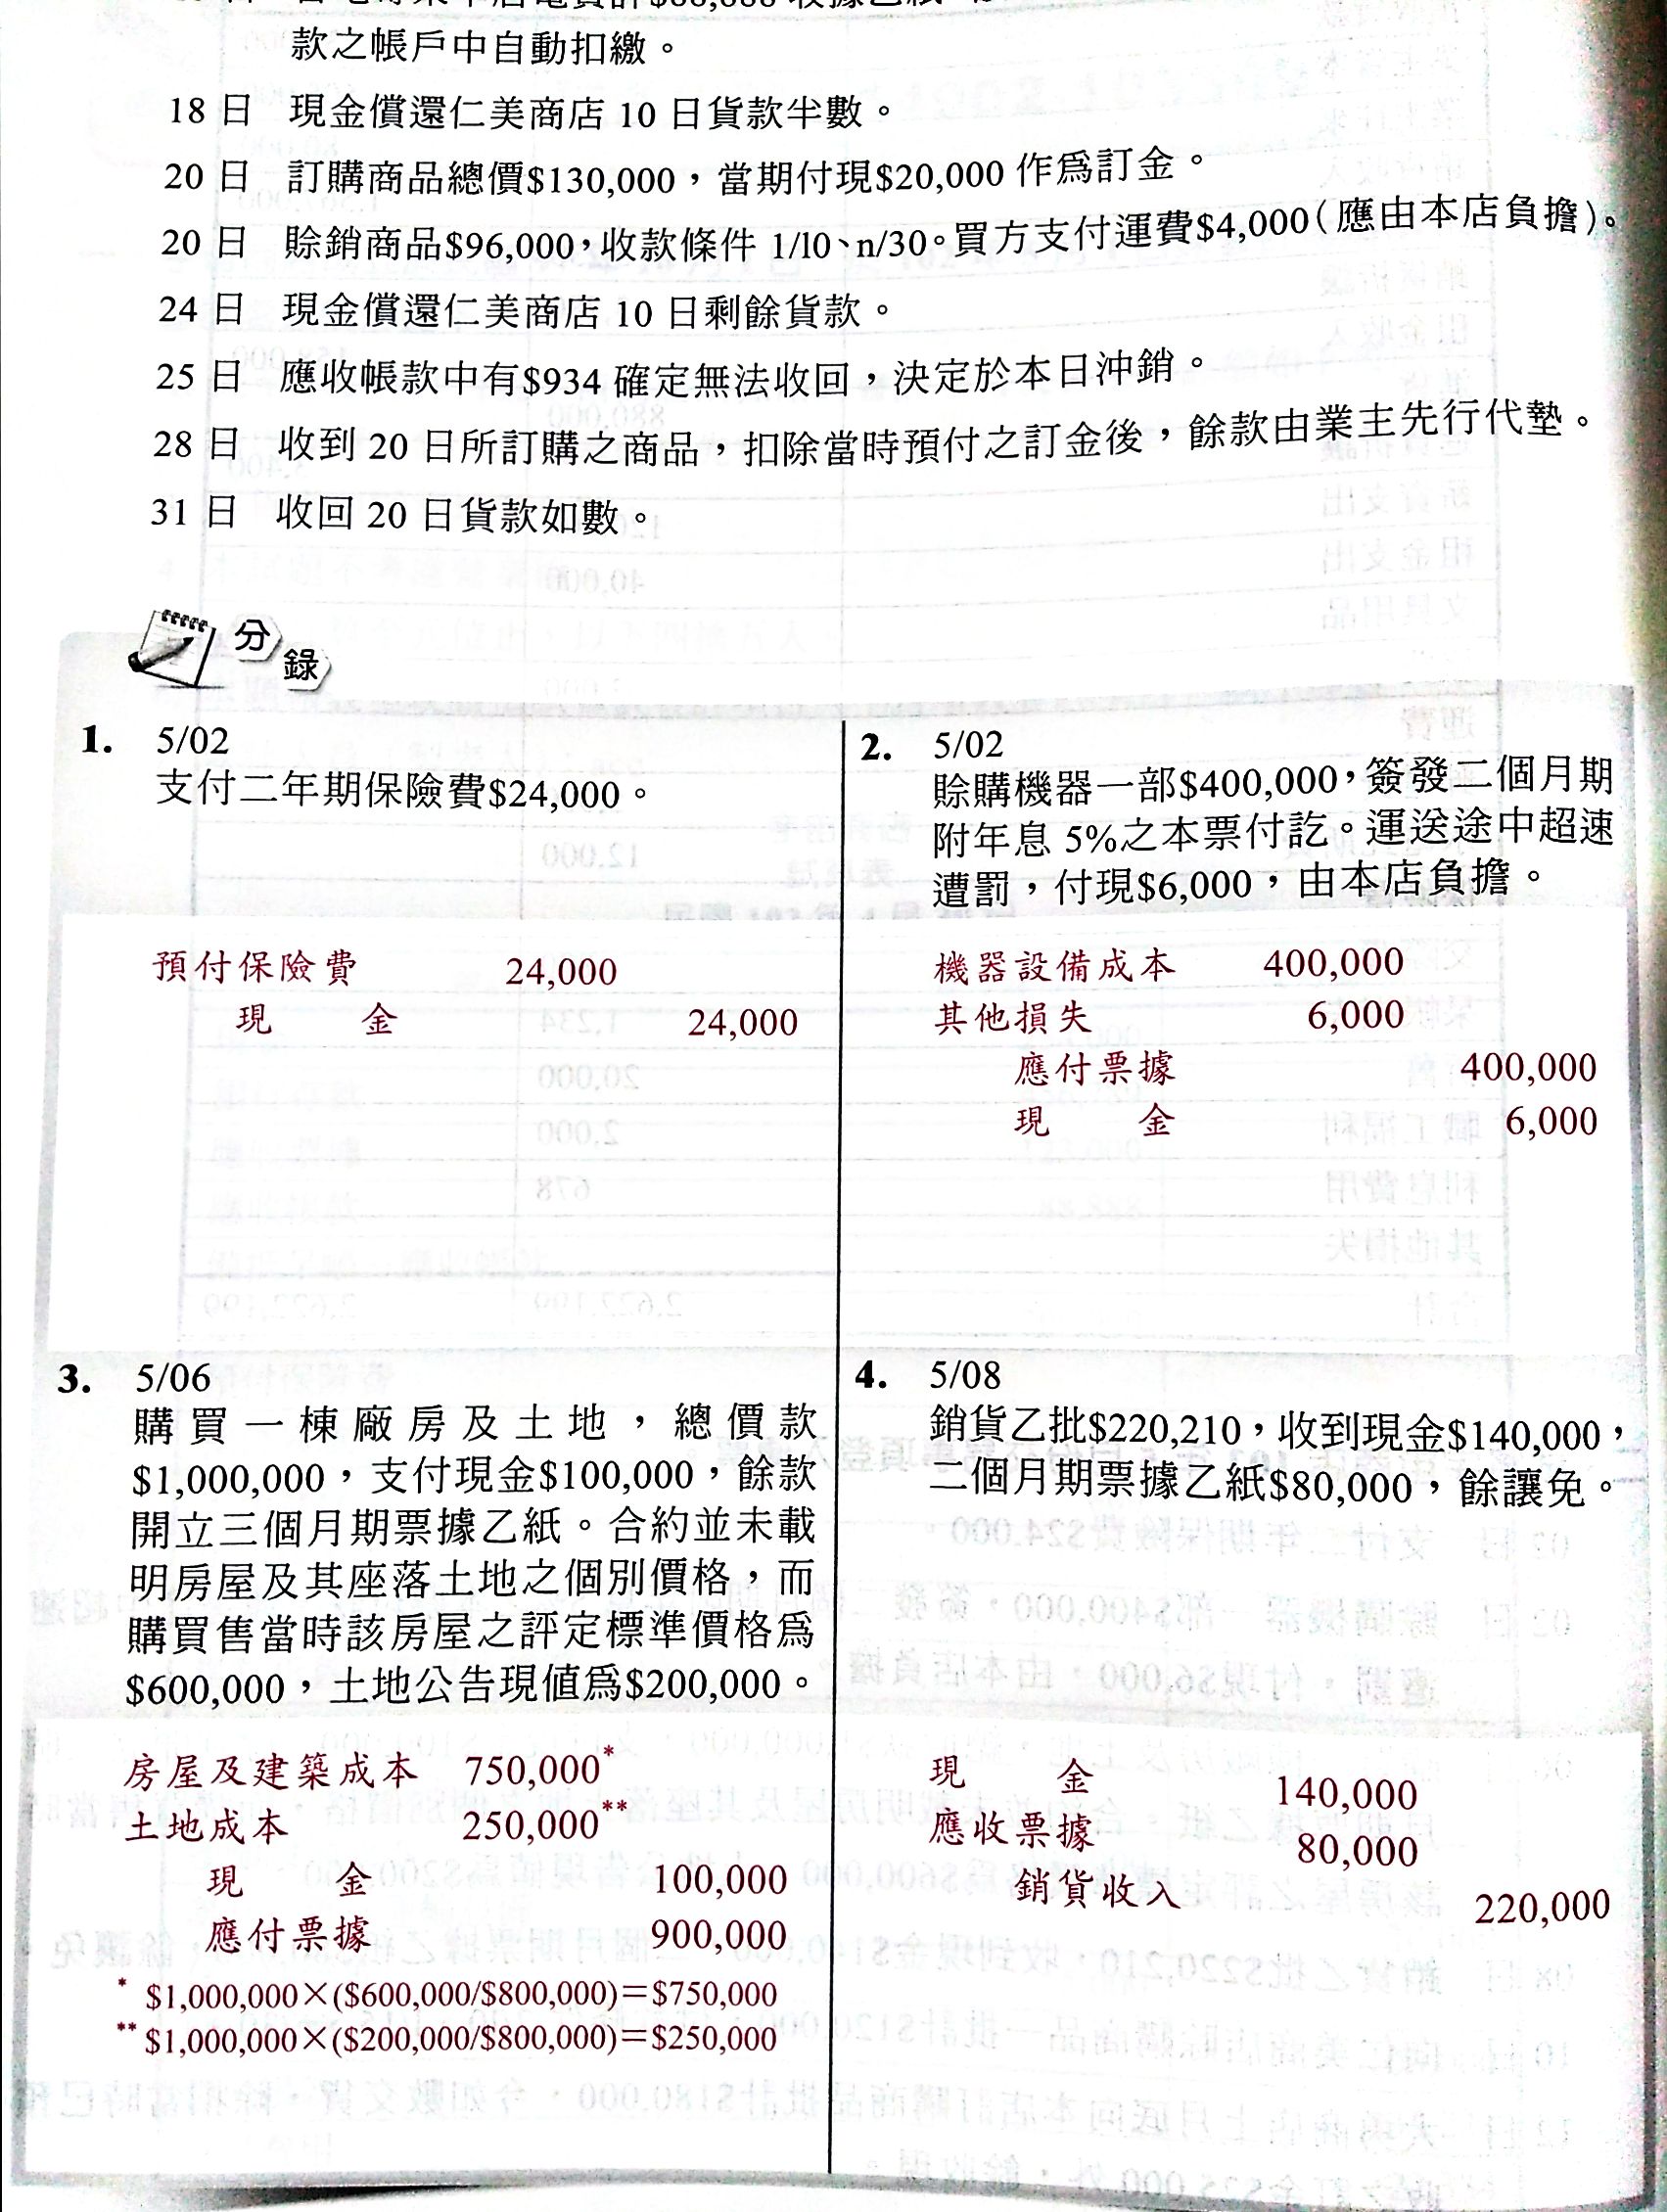 款之帳戶中自動扣繳。
18 日 現金償還仁美商店 10 日貨款半數。
20 日 訂購商品總價$130,000，當期付現$20,000 作爲訂金。
20 日 賒銷商品$96,000，收款條件 1/10、n/30。買方支付運費$4,000(應由本店負擔)。
24 日 現金償還仁美商店 10 日剩餘貨款。
25 日 應收帳款中有$934 確定無法收回，決定於本日沖銷。
28 日 收到 20 日所訂購之商品，扣除當時預付之訂金後，餘款由業主先行代墊。
31 日 收回 20 日貨款如數。
分錄
1. 5/02
支付二年期保險費$24,000。
預付保險費 24,000
現 金 24,000
2. 5/02
賒購機器一部$400,000，簽發二個月期
附年息 5%之本票付訖。運送途中超速
遭罰，付現$6,000，由本店負擔。
機器設備成本 400,000
其他損失 6,000
應付票據 400,000
現 金 6,000
3. 5/06
購買一棟廠房及土地，總價款
$1,000,000，支付現金$100,000，餘款
開立三個月期票據乙紙。合約並未載
明房屋及其座落土地之個別價格，而
購買售當時該房屋之評定標準價格爲
$600,000，土地公告現值爲$200,000。
房屋及建築成本 750,000*
土地成本 250,000**
現 金 100,000
應付票據 900,000
* $1,000,000×($600,000/$800,000)＝$750,000
** $1,000,000×($200,000/$800,000)＝$250,000
4. 5/08
銷貨乙批$220,210，收到現金$140,000，
二個月期票據乙紙$80,000，餘讓免。
現 金 140,000
應收票據 80,000
銷貨收入 220,000